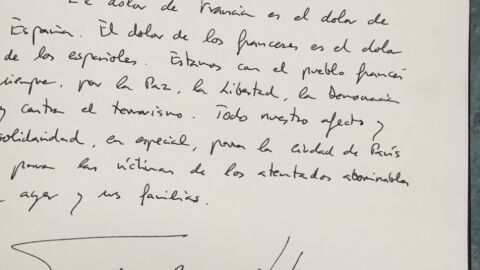 El dolor de Francia es el dolor de
España. El dolor de los franceses es el dolor
de los españoles. Estamos con el pueblo francés
siempre, por la Paz, la Libertad, la Democracia
y contra el terrorismo. Todo nuestro afecto y
solidaridad, en especial, para la ciudad de París
para las víctimas de los atentados abominables
ayer y sus familias.